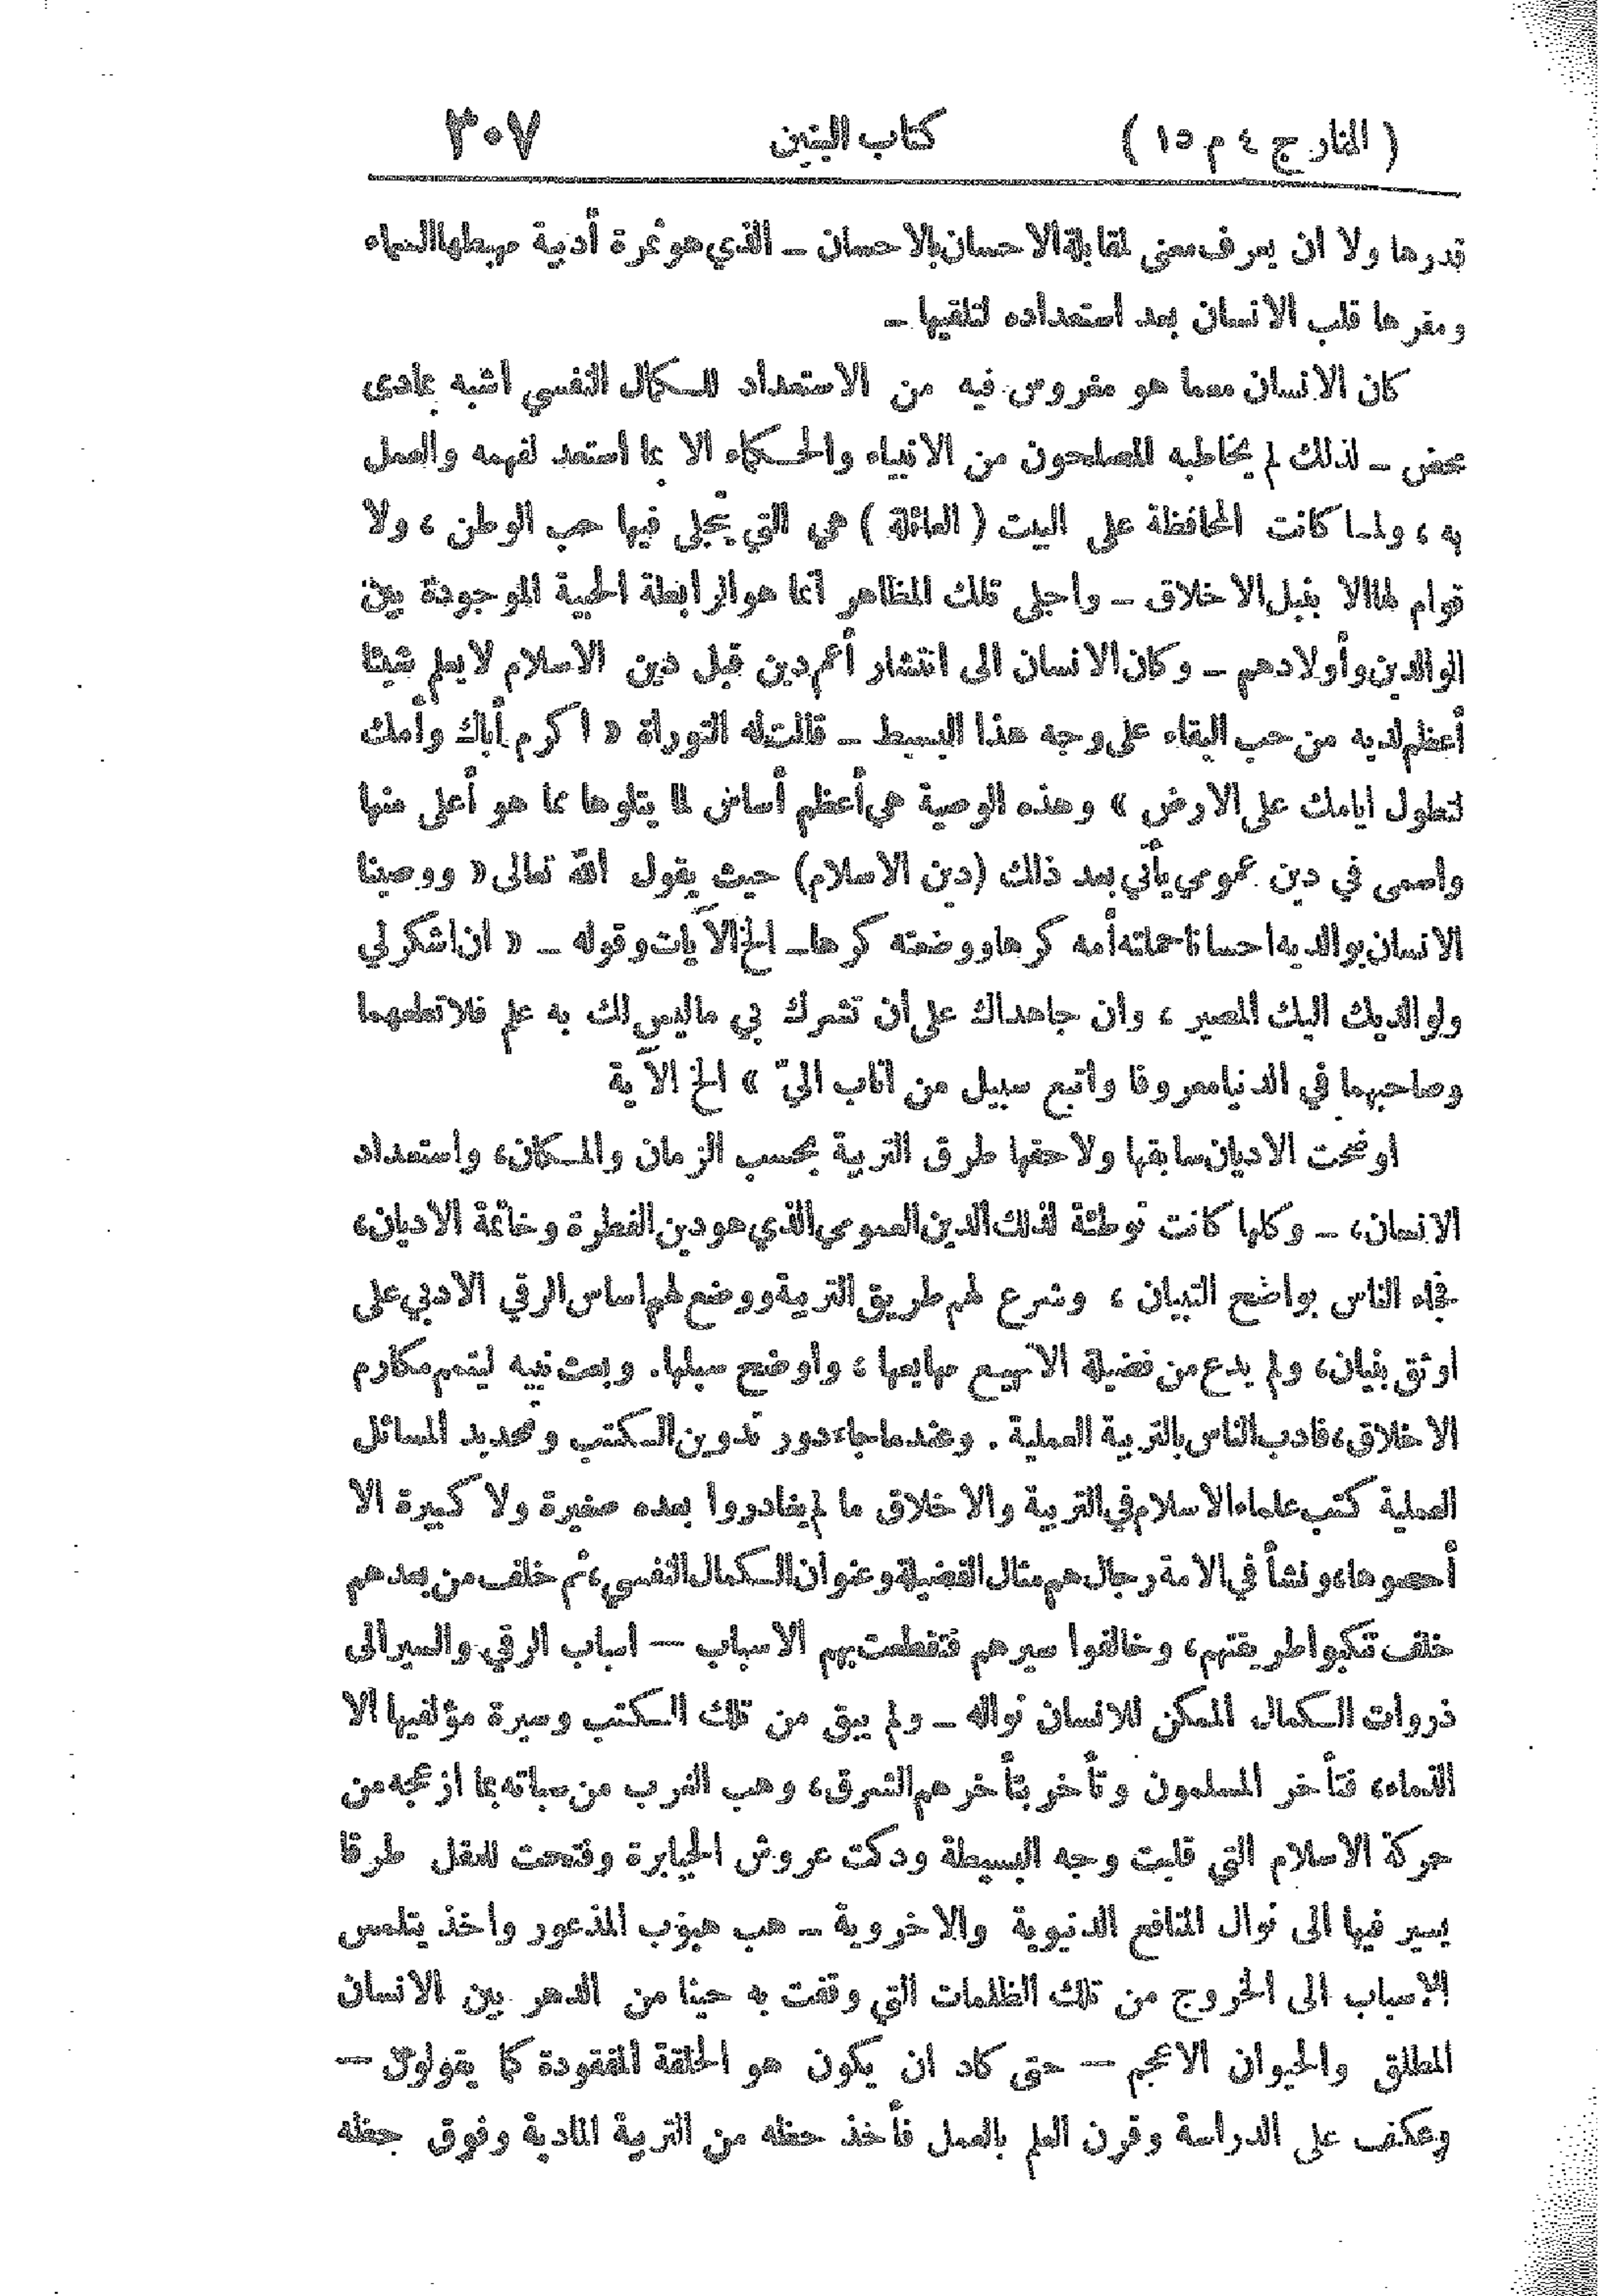 ( المنار ج ٤ م ١٥ ) كتاب البنين ٣٠٧
قدرها ولا ان يعرف معنى لمقابلة الاحسان بالاحسان ــ الذي هو ثمرة أدبية مهبطها السماء
ومقرها قلب الانسان بعد استعداده لتلقيها ــ
كان الانسان معما هو مغروس فيه من الاستعداد للكمال النفسي اشبه بمادى
محض ــ لذلك لم يخاطبه المصلحون من الانبياء والحكماء الا بما استعد لفهمه والعمل
به ، ولما كانت المحافظة على البيت ( العائلة ) هي التي يتجلى فيها حب الوطن ، ولا
قوام لها الا بنبل الاخلاق ــ واجلى تلك المظاهر انما هو الرابطة الحبية الموجودة بين
الوالدين وأولادهم ــ وكان الانسان الى انتشار أعم دين قبل دين الاسلام لا يعلم شيئا
أعظم لديه من حب البقاء على وجه هذا البسيط ــ قالت له التوراة « اكرم أباك وأمك
لتطول ايامك على الارض » وهذه الوصية هي أعظم أساس لما يتلوها مما هو أعلى منها
واسمى في دين عمومي يأتي بعد ذلك (دين الاسلام) حيث يقول الله تعالى « ووصينا
الانسان بوالديه احسانا حملته أمه كرها ووضعته كرها ــ الخ الآيات وقوله ــ « ان اشكر لي
ولوالديك اليك المصير ، وان جاهداك على ان تشرك بي ما ليس لك به علم فلا تطعهما
وصاحبهما في الدنيا معروفا واتبع سبيل من اناب اليّ » الخ الآية
اوضحت الاديان سابقها ولاحقها طرق التربية بحسب الزمان والمكان، واستعداد
الانسان، ــ وكلها كانت توطئة لذلك الدين العمومي الذي هو دين الفطرة وخاتمة الاديان،
فجاء الناس بواضح التبيان ، وشرع لهم طريق التربية ووضع لهم اساس الرقي الادبي على
اوثق بنيان، ولم يدع من فضيلة الا نهج مهايعها ، واوضح سبلها. وبعث نبيه ليتمم مكارم
الاخلاق، فادب الناس بالتربية العملية . وعندما جاء دور تدوين الكتب وتحديد المسائل
العملية كتب علماء الاسلام في التربية والاخلاق ما لم يغادروا بعده صغيرة ولا كبيرة الا
أحصوها، ونشأ في الامة رجال هم مثال الفضيلة وعنوان الكمال النفسي، ثم خلف من بعدهم
خلف تنكبوا طريقتهم، وخالفوا سيرهم فتقطعت بهم الاسباب — اسباب الرقي والسير الى
ذروات الكمال الممكن للانسان نواله ــ ولم يبق من تلك الكتب وسيرة مؤلفيها الا
الذماء، فتأخر المسلمون وتأخر بتأخرهم الشرق، وهب الغرب من سباته بما ازعجه من
حركة الاسلام التي قلبت وجه البسيطة ودكت عروش الجبابرة وفتحت للعقل طرقا
يسير فيها الى نوال المنافع الدنيوية والاخروية ــ هب هبوب المذعور واخذ يتلمس
الاسباب الى الخروج من تلك الظلمات التي وقفت به حينا من الدهر بين الانسان
المطلق والحيوان الاعجم — حتى كاد ان يكون هو الحلقة المفقودة كما يقولون —
وعكف على الدراسة وقرن العلم بالعمل فأخذ حظه من التربية المادية وفوق حظه